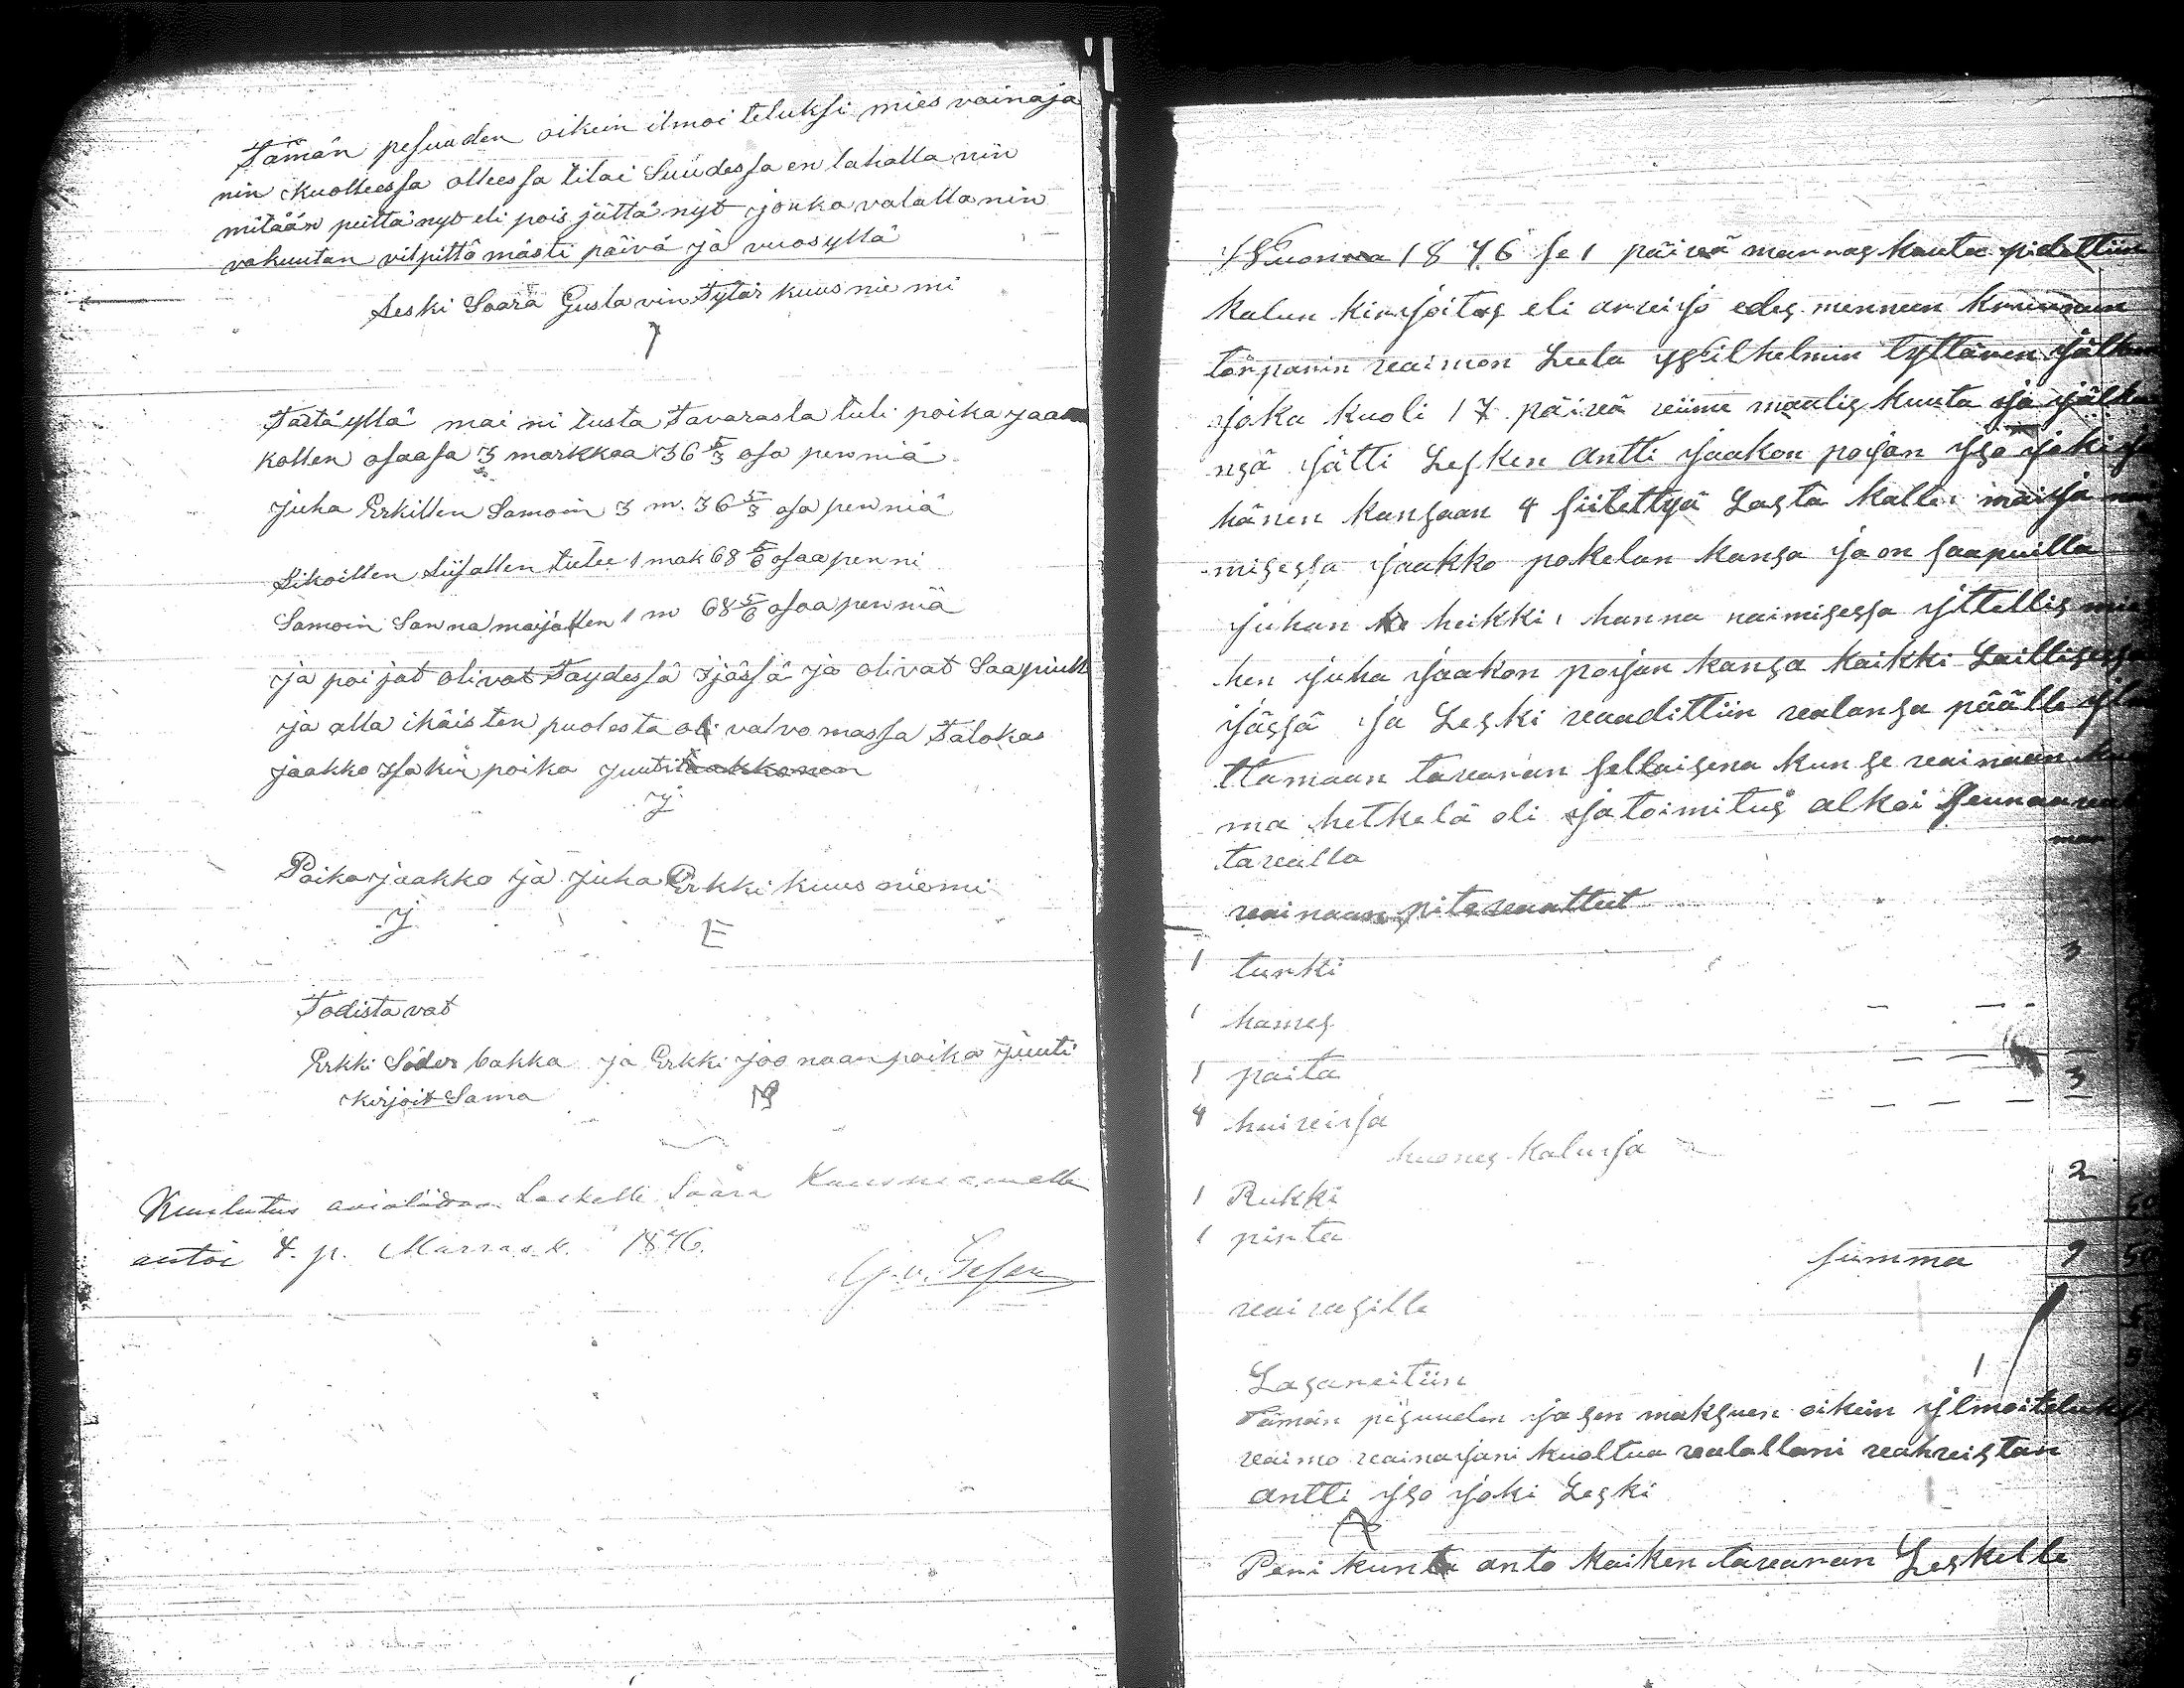 Tämän pesuuden oikein ilmoi teluksi mies vainaja
nin kuolleessa olleessa tilai Suudessa en tahalla nin
mitään peittä nyt eli pois jättä nyt jonka valalla nin
vakuutan vilpittö mästi päivä ja vuosyllä
Leski Saara Gusta vin Tytär kuus nie mi
Tästä yllä mai ni tusta Tavarasta tuli poika jaa
kollen osaasa 3 markkaa 36 5/3 osa penniä
juha Erkillen Samoin 3 m. 36 5/3 osa penniä
Likoillen Liisallen tulee 1 mak 68 5/6 osaa penni
Samoin Sanna maijallen 1 m 68 5/6 osaa penniä
ja poijat olivat Täydessä ijässä ja olivat Saapuill
ja alla ikäisten puolesta oli valvomassa Talokas
jaakko Isakin poika Juuti
J
Poika jaakko ja Juha Erkki kuus niemi
J E
Todistavat
Erkki Söder backa ja Erkki joo naan poika juuti
kirjoit Sama
Kuulutus avioliitoon Leskelle Saara Kuusniemelle
antoi 4. p. Marrask. 1876.
Wuonna 1876 se 1 päivä marras kuuta pidettiin
kalun kirjoitus eli arvijo edes menneen kruunun
torparin vaimon Leela Wilhelmin tyttären jälken
joka kuoli 17 päivä viime maalis kuuta ja jälke
nsä jätti Lesken Antti jaakon pojan Iso joki ja
hänen kansaan 4 siitettyä Lasta Kalle maija nai
misessa jaakko pokelan kansa ja on saapuilla
juhan heikki, hanna naimisessa ittellis mie
hen juha jaakon pojan kansa kaikki Laillisessa
ijässä ja Leski vaadittiin valansa päälle ilm
ttamaan tavaran sellaisena kun se vainaan kuo
ma hetkelä oli ja toimitus alkoi seuraava
tavalla
vainaan pitovaattet
1 turki 3
1 hames
1 paita
4 huivia 3
huones kaluja
1 Rukki 2
1 pirta 50
summa 9 50
vaivasille 5
Lasareitiin 5
Tämän pesuuden ja sen maksuen oikein ilmoiteluksi
vaimo vainajani kuoltua valallani vahvistan
Antti Iso joki Leski
Peri kunta anto kaiken tavaran Leskelle